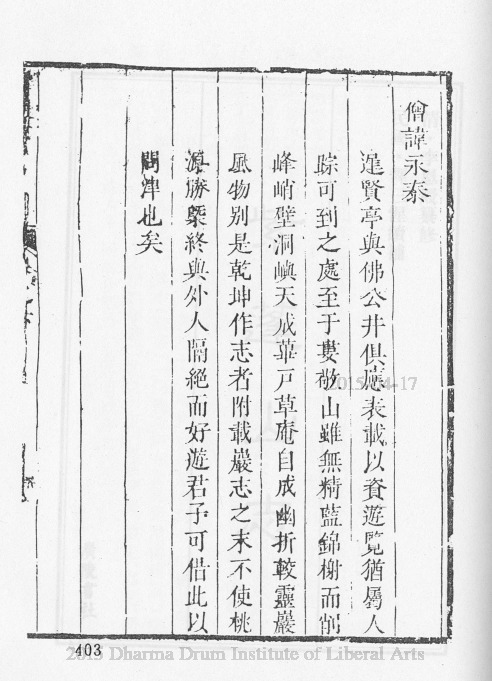 僧諱永泰
進賢亭與佛公井俱應表載以資遊覽猶屬人
踪可到之處至于婁敬山雖無精藍錦榭而削
峰峭壁洞嶼天成蓽戶草庵自成幽折較靈巖
風物別是乾坤作志者附載巖志之末不使桃
源勝槩終與外人隔絕而好遊君子可借此以
問津也矣
403
2015-04-17
2015 Dharma Drum Institute of Liberal Arts